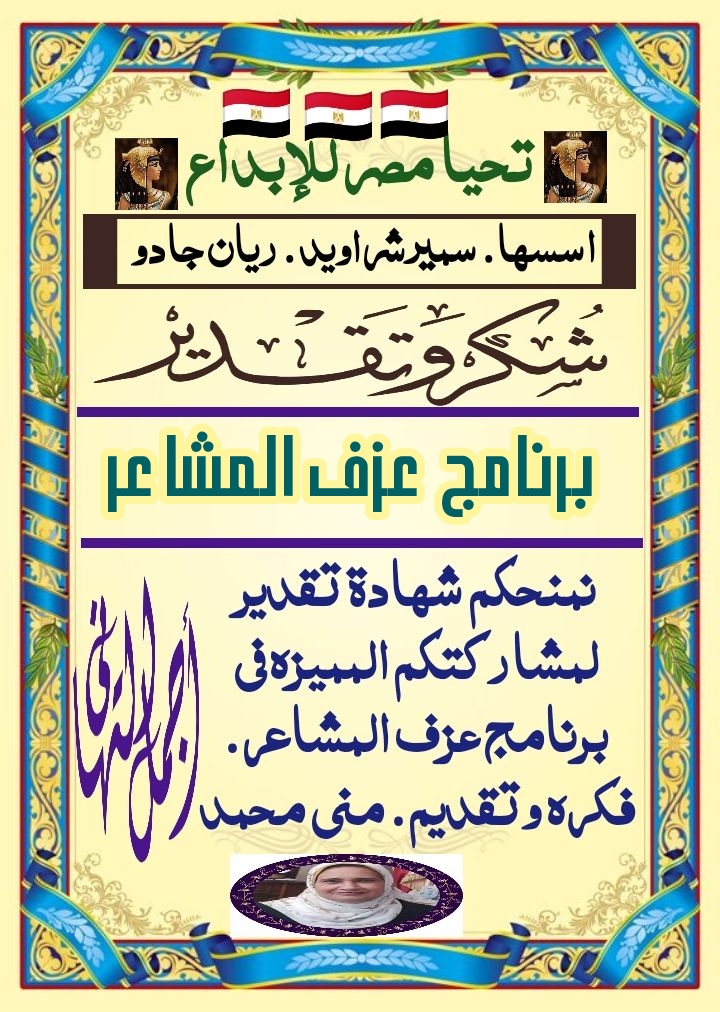 تحيا مصر للإبداع
اسسها. سمير شراويد. ريان جادو
شُكر وتقدير
برنامج عزف المشاعر
نمنحكم شهادة تقدير
لمشاركتكم المميزه في
برنامج عزف المشاعر.
فكره وتقديم. منى محمد
أجمل التهاني